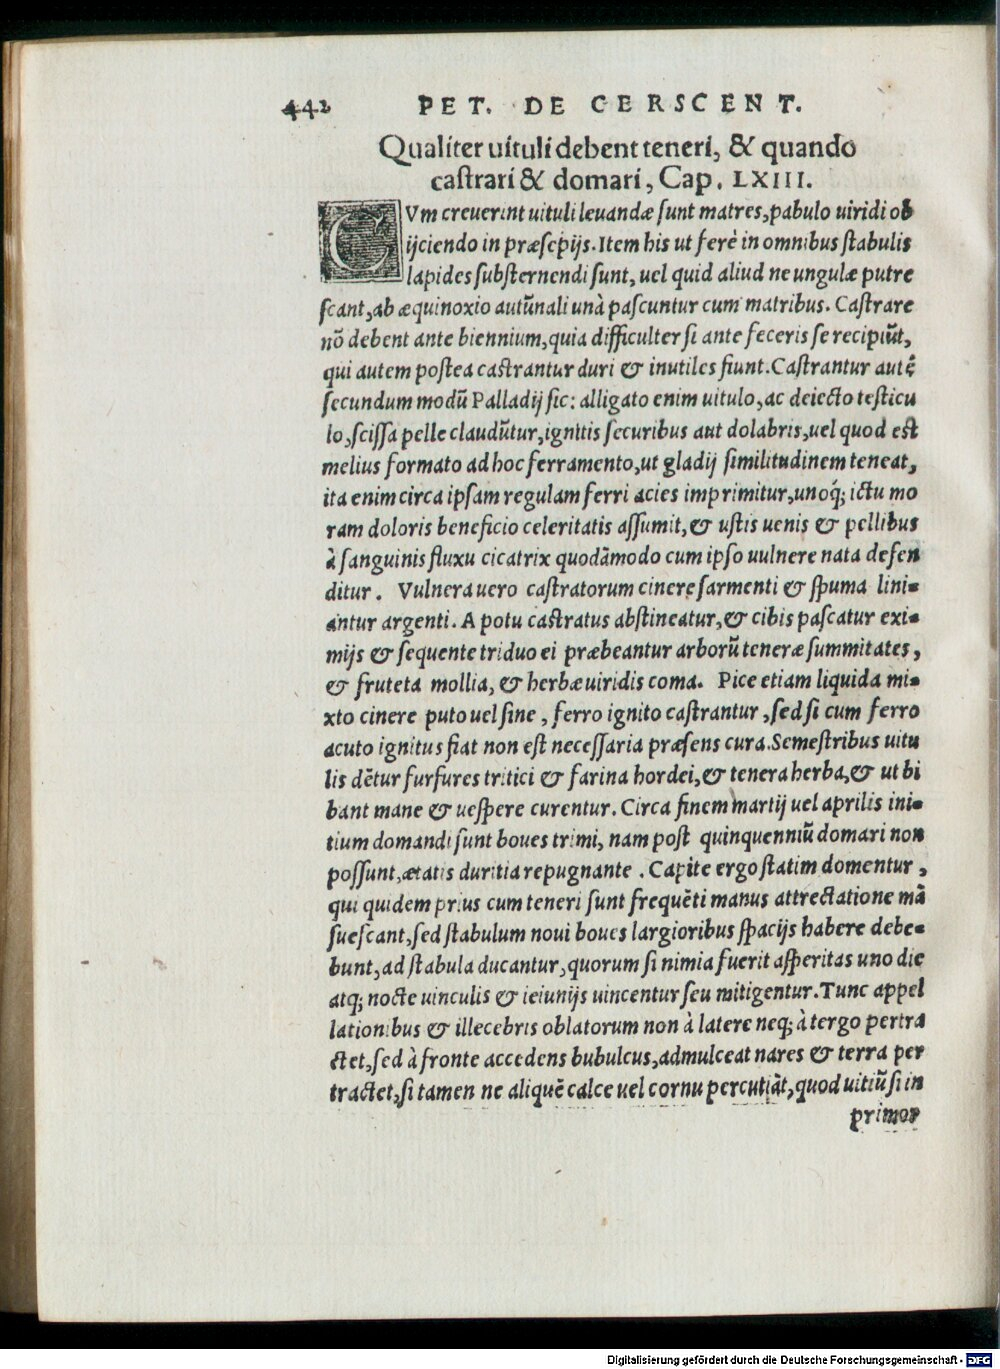 442 PET. DE CERSCENT.
Qualiter uituli debent teneri, & quando
castrari & domari, Cap. LXIII.
CVm creuerint uituli leuandæ sunt matres, pabulo uiridi ob
ijciendo in præsepijs. Item his ut ferè in omnibus stabulis
lapides substernendi sunt, uel quid aliud ne ungulæ putre
scant, ab æquinoxio autũnali unà pascuntur cum matribus. Castrare
nõ debent ante biennium, quia difficulter si ante feceris se recipiũt,
qui autem postea castrantur duri & inutiles fiunt. Castrantur autẽ
secundum modũ Palladij sic: alligato enim uitulo, ac deiecto testicu
lo, scissa pelle claudũtur, ignitis securibus aut dolabris, uel quod est
melius formato ad hoc ferramento, ut gladij similitudinem teneat,
ita enim circa ipsam regulam ferri acies imprimitur, unoq́; ictu mo
ram doloris beneficio celeritatis assumit, & ustis uenis & pellibus
à sanguinis fluxu cicatrix quodãmodo cum ipso uulnere nata defen
ditur. Vulnera uero castratorum cinere sarmenti & spuma lini-
antur argenti. A potu castratus abstineatur, & cibis pascatur exi-
mijs & sequente triduo ei præbeantur arborũ teneræ summitates,
& fruteta mollia, & herbæ uiridis coma. Pice etiam liquida mi-
xto cinere puto uel sine, ferro ignito castrantur, sed si cum ferro
acuto ignitus fiat non est necessaria præsens cura. Semestribus uitu
lis dẽtur furfures tritici & farina hordei, & tenera herba, & ut bi
bant mane & uespere curentur. Circa finem martij uel aprilis ini-
tium domandi sunt boues trimi, nam post quinquenniũ domari non
possunt, ætatis duritia repugnante. Capite ergo statim domentur,
qui quidem prius cum teneri sunt frequẽti manus attrectatione mã
suescant, sed stabulum noui boues largioribus spacijs habere debe-
bunt, ad stabula ducantur, quorum si nimia fuerit asperitas uno die
atq; nocte uinculis & ieiunijs uincentur seu mitigentur. Tunc appel
lationibus & illecebris oblatorum non à latere neq; à tergo pertra
ctet, sed à fronte accedens bubulcus, admulceat nares & terra per
tractet, si tamen ne aliquẽ calce uel cornu percutiãt, quod uitiũ si in
primor
Digitalisierung gefördert durch die Deutsche Forschungsgemeinschaft - DFG